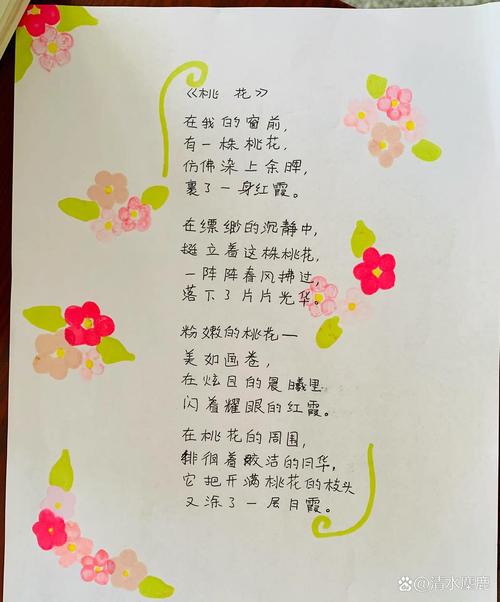 《桃 花》
在我的窗前,
有一株桃花,
仿佛染上余晖,
裹了一身红霞。
在缥缈的沉静中,
挺立着这株桃花,
一阵阵春风拂过,
落下了片片光华。
粉嫩的桃花—
美如画卷,
在炫目的晨曦里
闪着耀眼的红霞。
在桃花的周围,
徘徊着皎洁的月华,
它把开满桃花的枝头
又涂了一层月霞。
Bai百科 @清水麋鹿